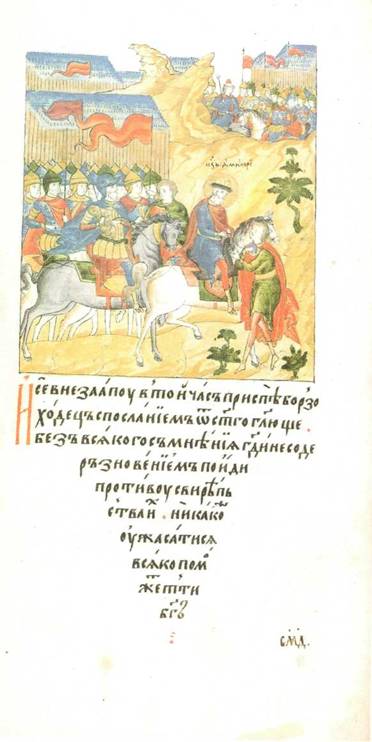 кн҃зь димитрїй
И се внезаапоу в то́й ча́съ приспѣ́ борзо
хо́децъ с посла́нїемъ ѿ ст҃го гл҃юще.
безъ всѧ́кого съмнѣ́нїѧ гд҃и не со де
рѣзнове́нїемъ по́йди
проти́воу свирѣ́пь
ства и҆х. ника́ко
оу҆жаса́тисѧ
всѧ́ко помо
же́тъ ти
бг҃ъ
смд.